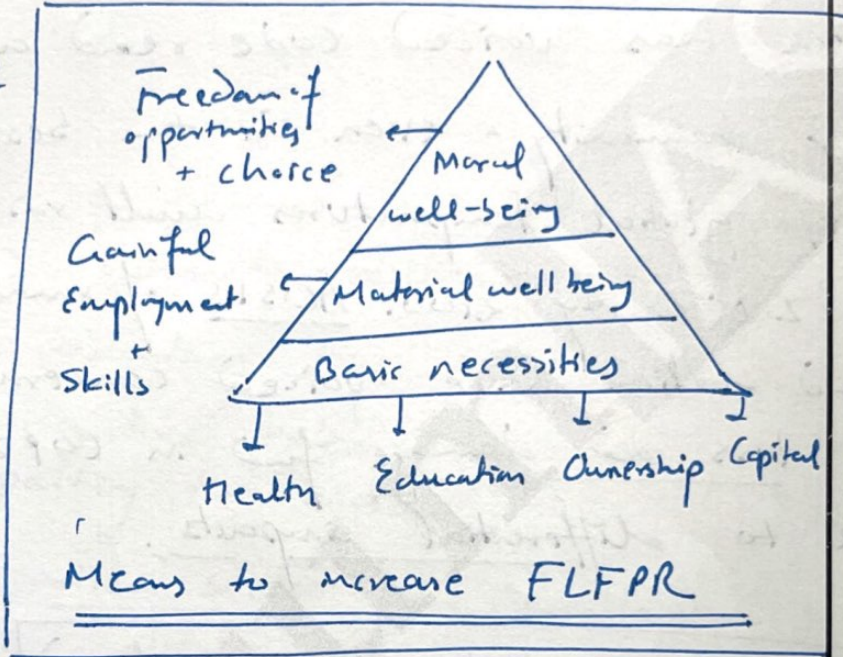 Freedom of
opportunities
+ choice
Moral
well-being
Gainful
Employment
+
Skills
Material well being
Basic necessities
Health
Education
Ownership
Capital
Means to increase FLFPR